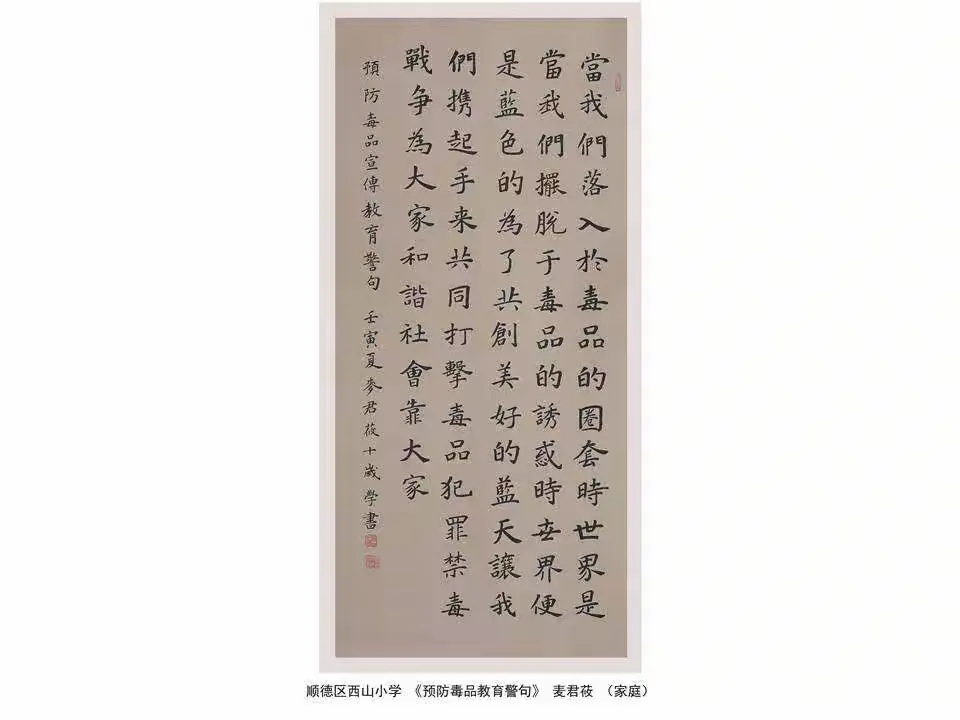 當我們落入於毒品的圈套時世界是
當我們擺脫于毒品的誘惑時世界便
是藍色的為了共創美好的藍天讓我
們携起手来共同打擊毒品犯罪禁毒
戰争為大家和諧社會靠大家
預防毒品宣傳教育警句 壬寅夏麥君莜十歲學書
顺德区西山小学 《预防毒品教育警句》 麦君莜 （家庭）